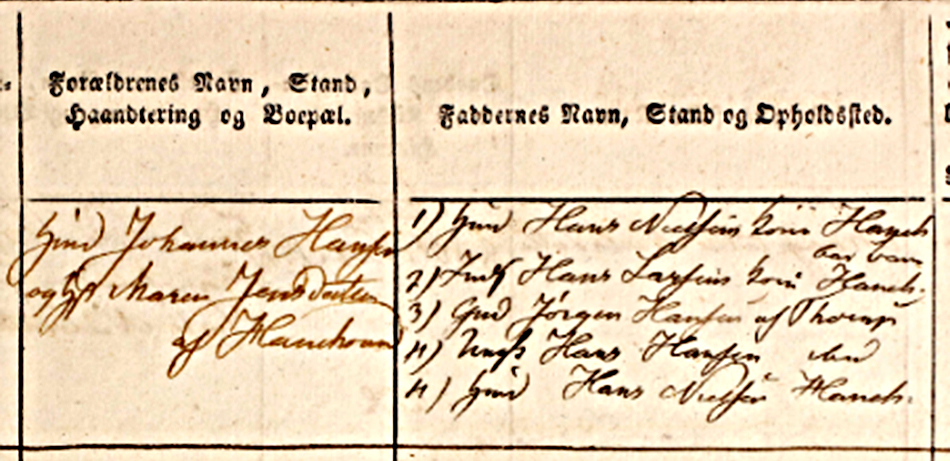 Forældrenes Navn, Stand,
Haandtering og Boepæl.
Faddernes Navn, Stand og Opholdssted.
Gmd Johannes Hansen
og Maren Jensdatter
af
1) Gmd Hans Nielsens Kone Hauch
bar barn
2) Hans Larsens Kone Hauch.
3) Gmd Jørgen Hansen af Thorup
4) Hans Hansen
4) Gmd Hans Nielsen Hauch.